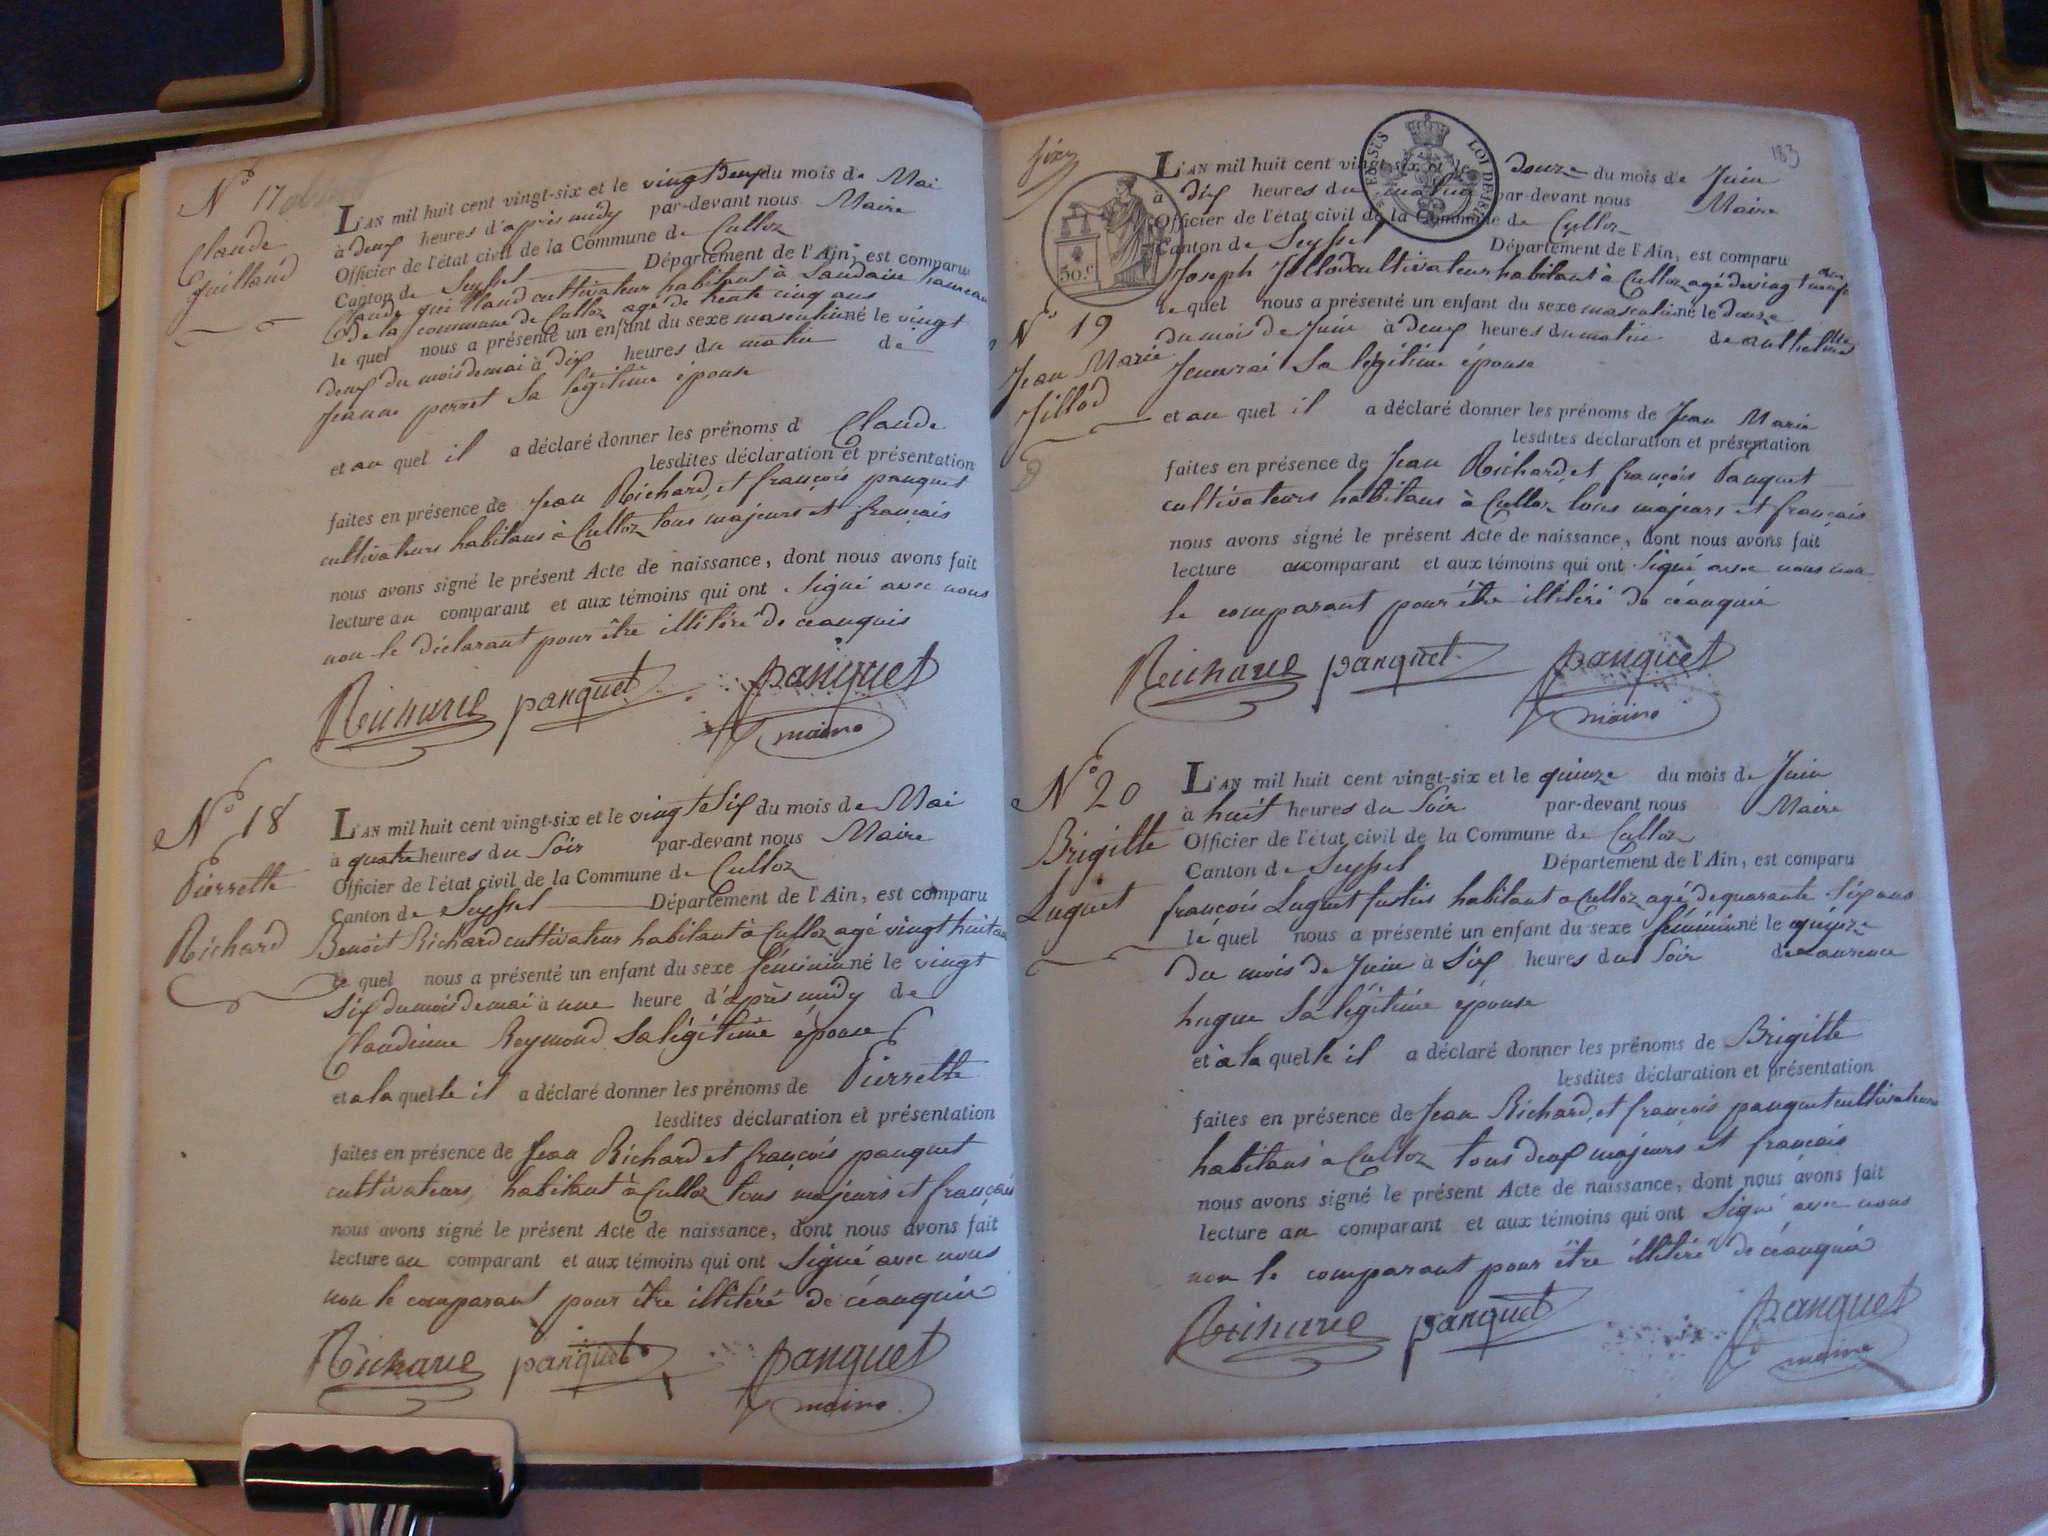 N° 17
Claude
Guilland
L'AN mil huit cent vingt-six et le vingt Deux du mois de Mai
à deux heures d'après midy par-devant nous Maire
Officier de l'état civil de la Commune de Culloz
Canton de Seyssel Département de l'Ain, est comparu
Claude Guilland cultivateur habitant à Landaize hameau
de la commune de Culloz agé de trente cinq ans
le quel nous a présenté un enfant du sexe masculin né le vingt
deux du mois de mai à dix heures du matin de
Jeanne perret Sa légitime épouse
et au quel il a déclaré donner les prénoms d Claude
lesdites déclaration et présentation
faites en présence de Jean Richard, et françois panquet
cultivateurs habitans à Culloz tous majeurs et français
nous avons signé le présent Acte de naissance, dont nous avons fait
lecture au comparant et aux témoins qui ont Signé avec nous
non le déclarant pour être illitéré de ce enquis
Richard panquet panquet
maire
N° 18
Pierrette
Richard
L'AN mil huit cent vingt-six et le vingt Six du mois de Mai
à quatre heures du Soir par-devant nous Maire
Officier de l'état civil de la Commune de Culloz
Canton de Seyssel Département de l'Ain, est comparu
Benoit Richard cultivateur habitant à Culloz agé vingt huit ans
le quel nous a présenté un enfant du sexe féminin né le vingt
Six du mois de mai à une heure d'après midy de
Claudine Reymond Sa légitime épouse
et a la quelle il a déclaré donner les prénoms de Pierrette
lesdites déclaration et présentation
faites en présence de Jean Richard et françois panquet
cultivateurs habitant à Culloz tous majeurs et français
nous avons signé le présent Acte de naissance, dont nous avons fait
lecture au comparant et aux témoins qui ont Signé avec nous
non le comparant pour être illitéré de ce enquis
Richard panquet panquet
maire
183
50 c.
N° 19
Jean Marie
Jillod
L'AN mil huit cent vingt-six et le douze du mois de Juin
à Dix heures du matin par-devant nous Maire
Officier de l'état civil de la Commune de Culloz
Canton de Seyssel Département de l'Ain, est comparu
Joseph Jillod cultivateur habitant à Culloz agé de vingt neuf ans
le quel nous a présenté un enfant du sexe masculin né le douze
du mois de Juin à deux heures du matin de anthelmette
Sa légitime épouse
et au quel il a déclaré donner les prénoms de Jean Marie
lesdites déclaration et présentation
faites en présence de Jean Richard, et françois Panquet
cultivateurs habitans à Culloz tous majeurs et français
nous avons signé le présent Acte de naissance, dont nous avons fait
lecture au comparant et aux témoins qui ont Signé avec nous non
le comparant pour être illitéré de ce enquis
Richard panquet panquet
maire
N° 20
Brigitte
Luguet
L'AN mil huit cent vingt-six et le quinze du mois de Juin
à huit heures du Soir par-devant nous Maire
Officier de l'état civil de la Commune de Culloz
Canton de Seyssel Département de l'Ain, est comparu
françois Luguet habitant a Culloz agé de quarante Six ans
le quel nous a présenté un enfant du sexe féminin né le quinze
du mois de Juin à Six heures du Soir de Laurence
hugue Sa légitime épouse
et à la quelle il a déclaré donner les prénoms de Brigitte
lesdites déclaration et présentation
faites en présence de Jean Richard, et françois panquet cultivateurs
habitans à Culloz tous deux majeurs et français
nous avons signé le présent Acte de naissance, dont nous avons fait
lecture au comparant et aux témoins qui ont Signé avec nous
non le comparant pour être illitéré de ce enquis
Richard panquet panquet
maire